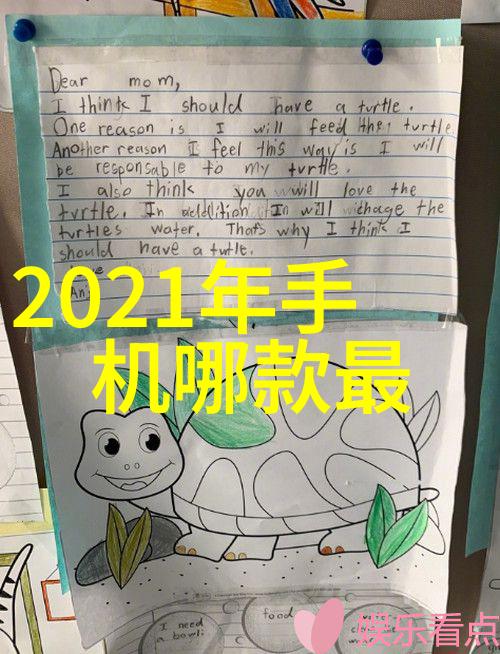 Dear mom,
I think I should have a turtle.
One reason is I will feed the turtle
Another reason I feel this way is I will
be responsable to my turtle.
I also think you will love the
turtle. In addition In will chage the
turtles water. That's why I think I
should have a turtle.
2021年手
机哪款最
I need
a bowl
food
娱乐看点